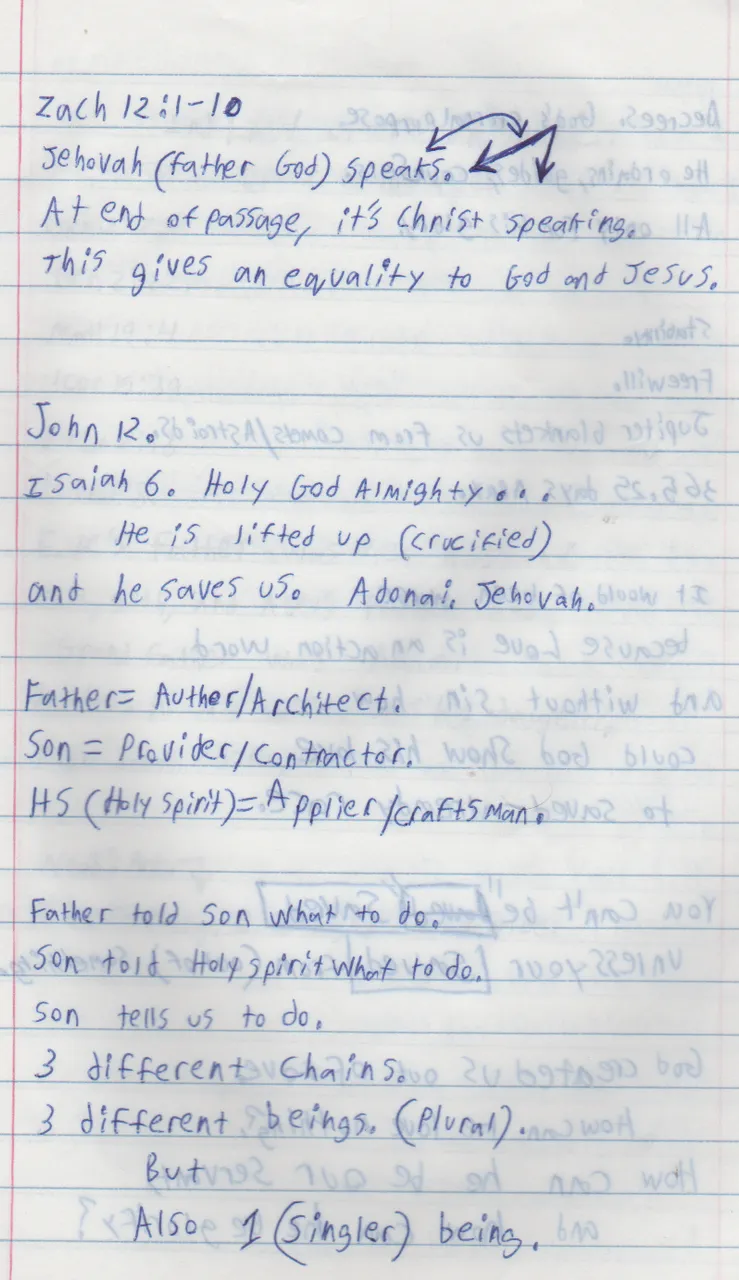 Zach 12:1-10
Jehovah (father God) speaks.
At end of passage, it's Christ speaking.
This gives an equality to God and Jesus.
John 12.
Isaiah 6. Holy God Almighty...
He is lifted up (crucified)
and he saves us. Adonai. Jehovah.
Father= Auther/Architect.
Son = Provider/contractor.
HS (Holy Spirit)= Applier/craftsman.
Father told Son what to do.
Son told Holy Spirit what to do.
Son tells us to do.
3 different Chains.
3 different beings. (Plural).
But
Also 1 (Singler) being.